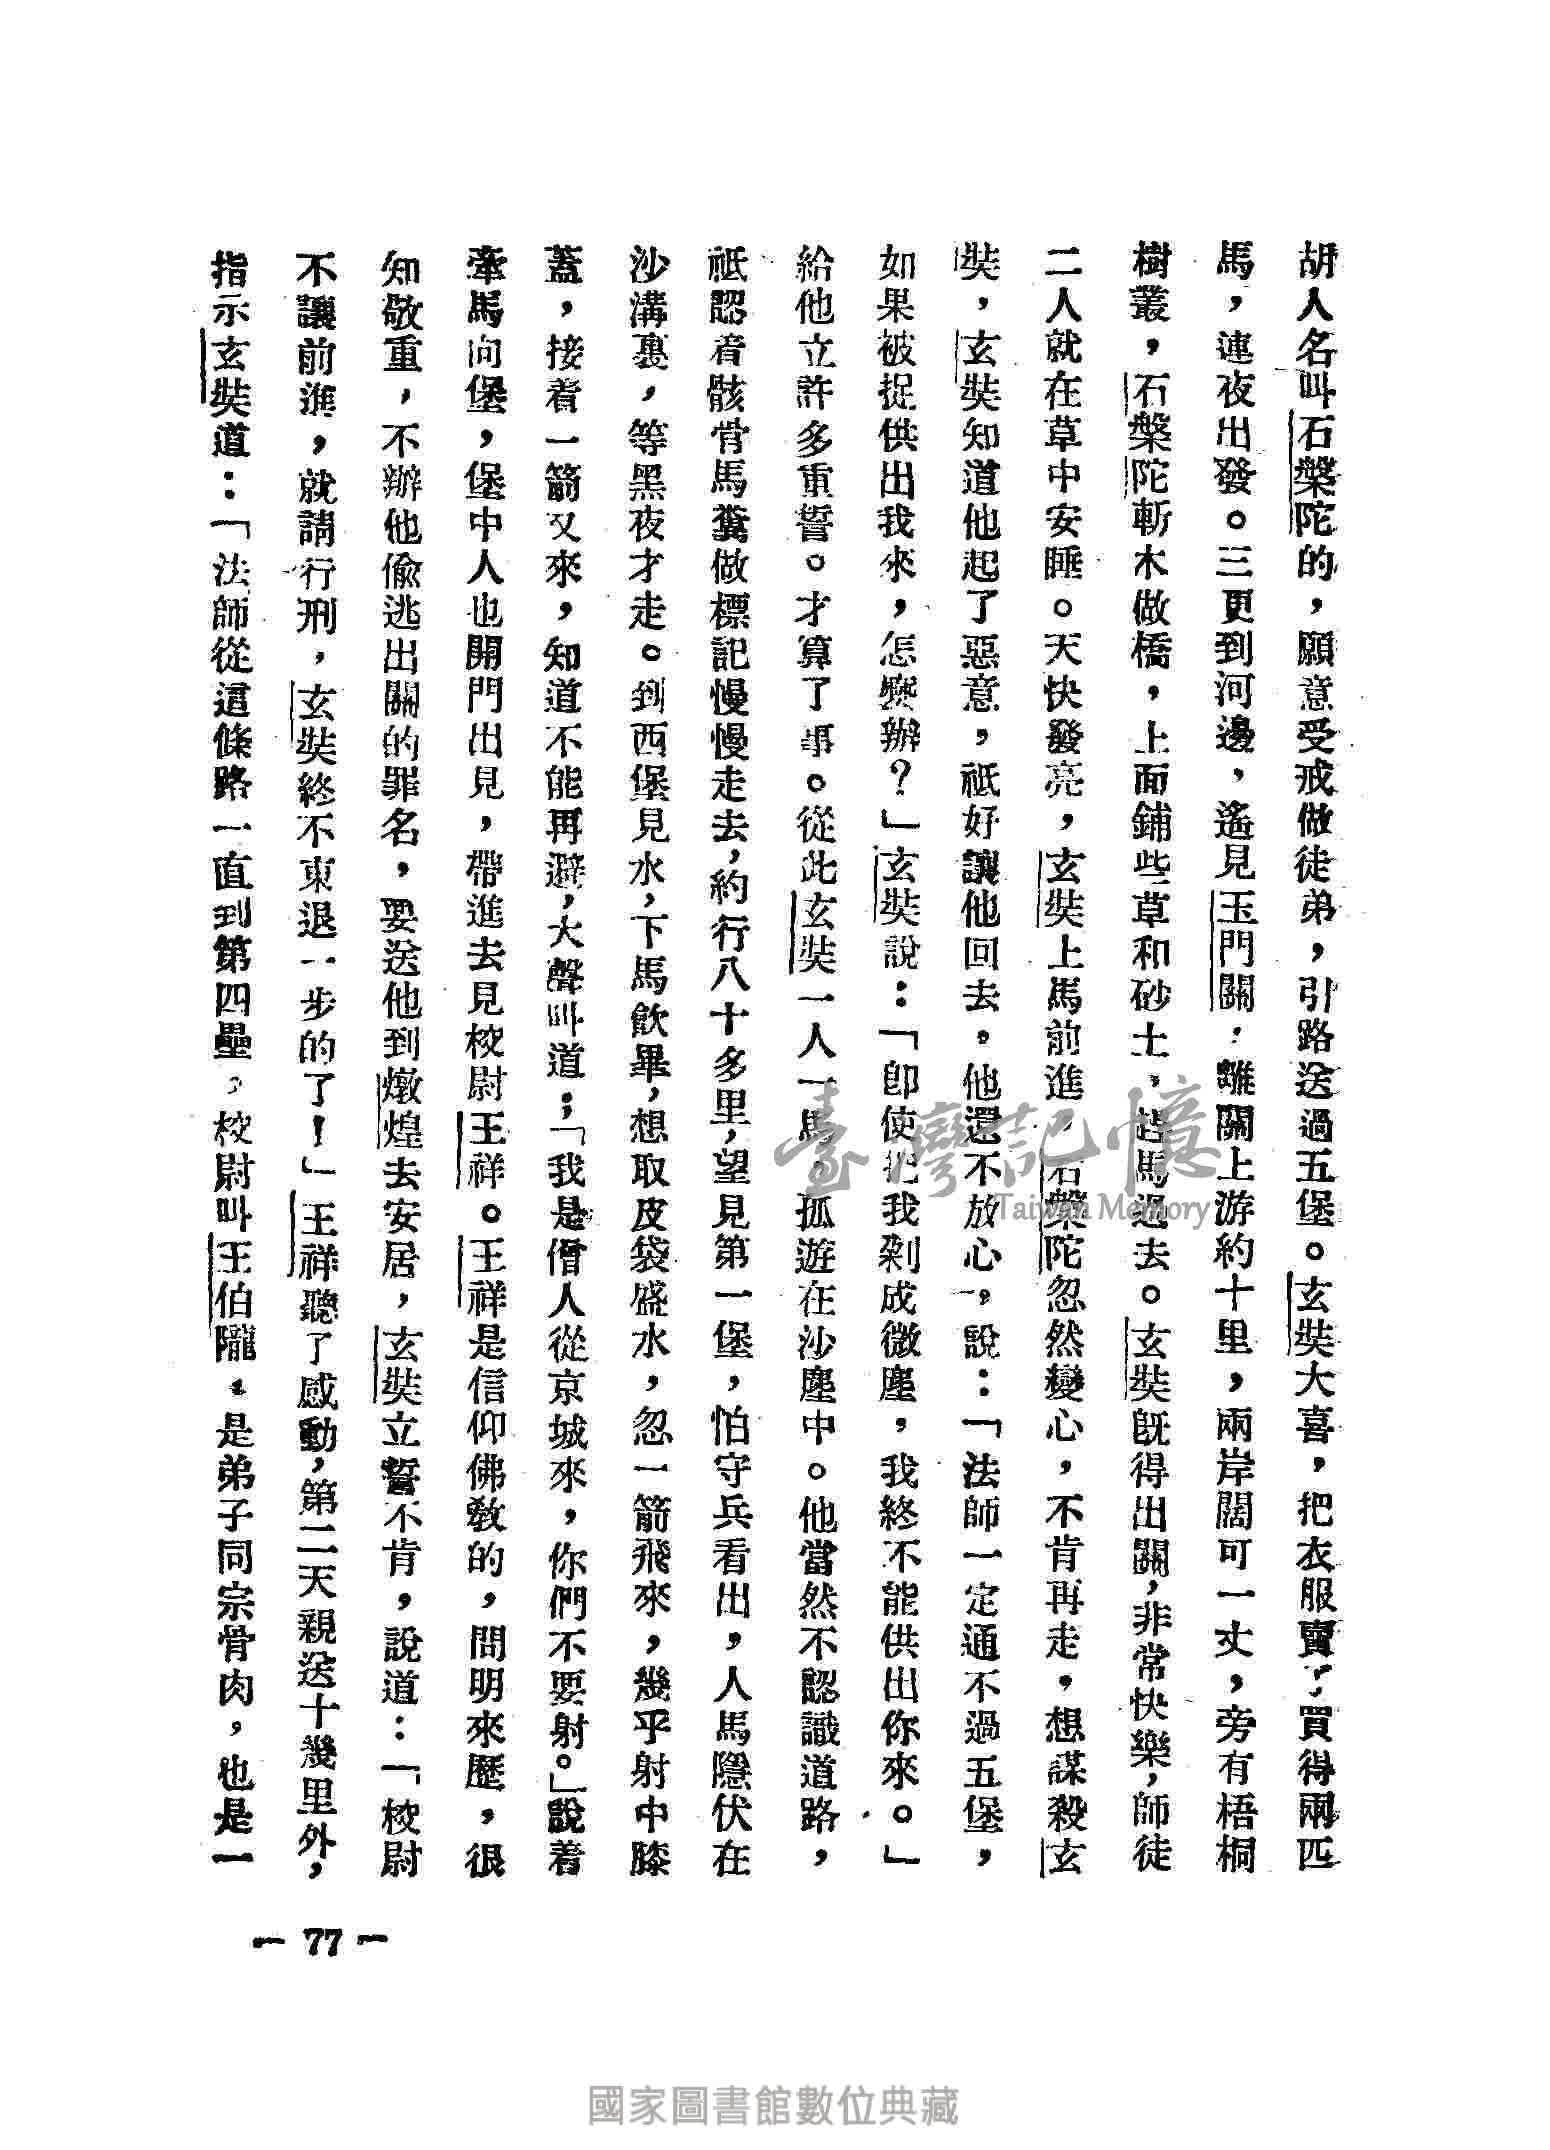 胡人名叫石槃陀的，願意受戒做徒弟，引路送過五堡。玄奘大喜，把衣服賣了買得兩匹
馬，連夜出發。三更到河邊，遙見玉門關，離關上游約十里，兩岸闊可一丈，旁有梧桐
樹叢，石槃陀斬木做橋，上面鋪些草和砂土，趕馬過去。玄奘旣得出關，非常快樂，師徒
二人就在草中安睡。天快發亮，玄奘上馬前進，石槃陀忽然變心，不肯再走，想謀殺玄
奘，玄奘知道他起了惡意，祇好讓他回去。他還不放心，說：「法師一定通不過五堡，
如果被捉供出我來，怎麼辦？」玄奘說：「卽使把我剁成微塵，我終不能供出你來。」
給他立許多重誓。才算了事。從此玄奘一人一馬，孤遊在沙塵中。他當然不認識道路，
祇認着骸骨馬糞做標記慢慢走去，約行八十多里，望見第一堡，怕守兵看出，人馬隱伏在
沙溝裏，等黑夜才走。到西堡見水，下馬飮畢，想取皮袋盛水，忽一箭飛來，幾乎射中膝
蓋，接着一箭又來，知道不能再避，大聲叫道：「我是僧人從京城來，你們不要射。」說着
牽馬向堡，堡中人也開門出見，帶進去見校尉王祥。王祥是信仰佛敎的，問明來歷，很
知敬重，不辦他偷逃出關的罪名，要送他到燉煌去安居，玄奘立誓不肯，說道：「校尉
不讓前進，就請行刑，玄奘終不東退一步的了！」王祥聽了感動，第二天親送十幾里外，
指示玄奘道：「法師從這條路一直到第四壘，校尉叫王伯隴，是弟子同宗骨肉，也是一
— 77 —
臺灣記憶
Taiwan Memory
國家圖書館數位典藏